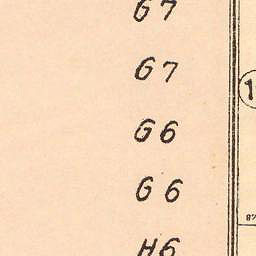 G7
G7
G6
G6
H6